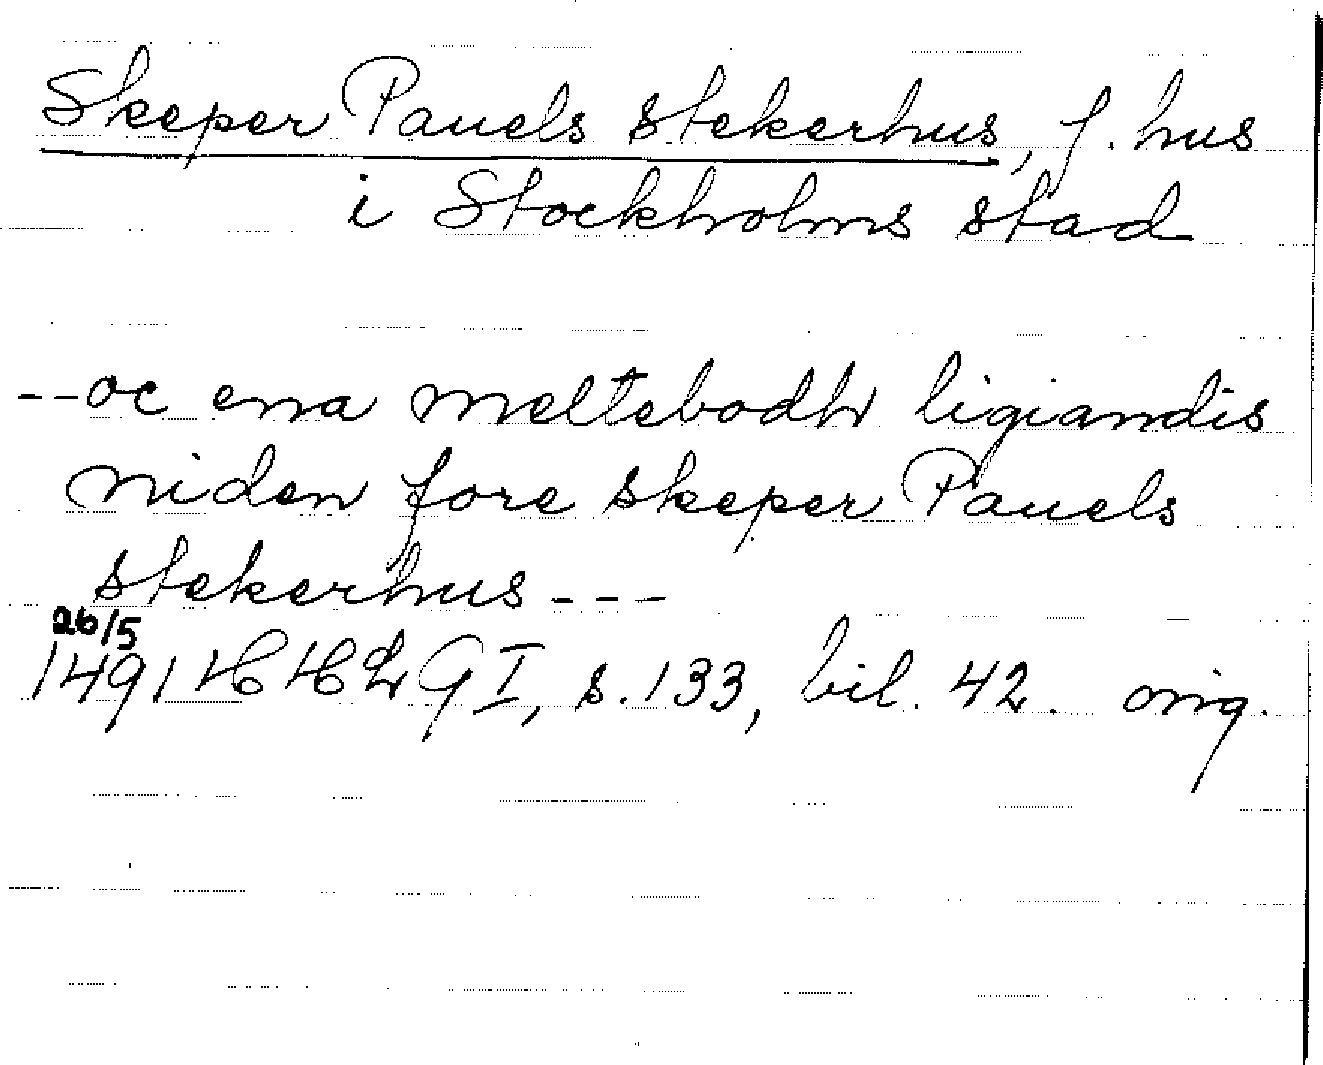 Skeper Pauels stekerhus, f. hus
i Stockholms stad
--oc ena meltebodh ligiandis
niden fore skeper Pauels
stekerhus---
26/5
1491 HHLG I, s. 133, bil. 42. orig.